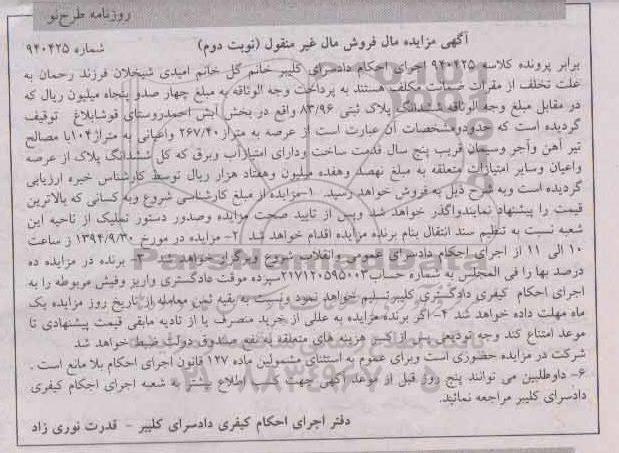 روزنامه طرح‌نو
آگهی مزایده مال فروش مال غیر منقول (نوبت دوم)
شماره ۹۴۰۴۲۵
برابر پرونده کلاسه ۹۴۰۴۲۵ اجرای احکام دادسرای کلیبر خانم گل خانم امیدی شیخلان فرزند رحمان به
علت تخلف از مقررات ضمانت مکلف هستند به پرداخت وجه الوثاقه به مبلغ چهار صدو پنجاه میلیون ریال که
در مقابل مبلغ وجه الوثاقه ششدانگ پلاک ثبتی ۸۳/۹۶ واقع در بخش ابش احمدروستای قوشابلاغ توقیف
گردیده است که حدودومشخصات آن عبارت است از عرصه به متراژ۲۶۷/۴۰ واعیانی به متراژ۱۰۴با مصالح
تیر آهن وآجر وسیمان قریب پنج سال قدمت ساخت ودارای امتیازآب وبرق که کل ششدانگ پلاک از عرصه
واعیان وسایر امتیازات متعلقه به مبلغ نهصد وهفده میلیون وهفتاد هزار ریال توسط کارشناس خبره ارزیابی
گردیده است وبه شرح ذیل به فروش خواهد رسید. ۱-مزایده از مبلغ کارشناسی شروع وبه کسانی که بالاترین
قیمت را پیشنهاد نمایندواگذر خواهد شد وپس از تایید صحت مزایده وصدور دستور تملیک از ناحیه این
شعبه نسبت به تنظیم سند انتقال بنام برنده مزایده اقدام خواهد شد ۲- مزایده در مورخ ۱۳۹۴/۹/۳۰ ز ساعت
۱۰ الی ۱۱ از اجرای احکام دادسرای عمومی وانقلاب شروع وبرگزار خواهد شد ۳- برنده در مزایده ده
درصد بها را فی المجلس به شماره حساب۲۱۷۱۲۰۵۹۵۰۰۳سپرده موقت دادگستری واریز وفیش مربوطه را به
اجرای احکام کیفری دادگستری کلیبرتسلیم خواهد نمود ونسبت به بقیه ثمن معامله از تاریخ روز مزایده یک
ماه مهلت داده خواهد شد ۴- اگر برنده مزایده به عللی از خرید منصرف یا از تادیه مابقی قیمت پیشنهادی تا
موعد امتناع کند وجه تودیعی پس از کسر هزینه های متعلقه به نفع صندوق دولت ضبط خواهد شد
شرکت در مزایده حضوری است وبرای عموم به استثنای مشمولین ماده ۱۲۷ قانون اجرای احکام بلا مانع است .
۶- داوطلبین می توانند پنج روز قبل از موعد آگهی جهت کسب اطلاع بیشتر به شعبه اجرای احکام کیفری
دادسرای کلیبر مراجعه نمائید.
دفتر اجرای احکام کیفری دادسرای کلیبر - قدرت نوری زاد
ParsNamadData
۰۲۱-۸۸۳۴۹۶۷۰-۵